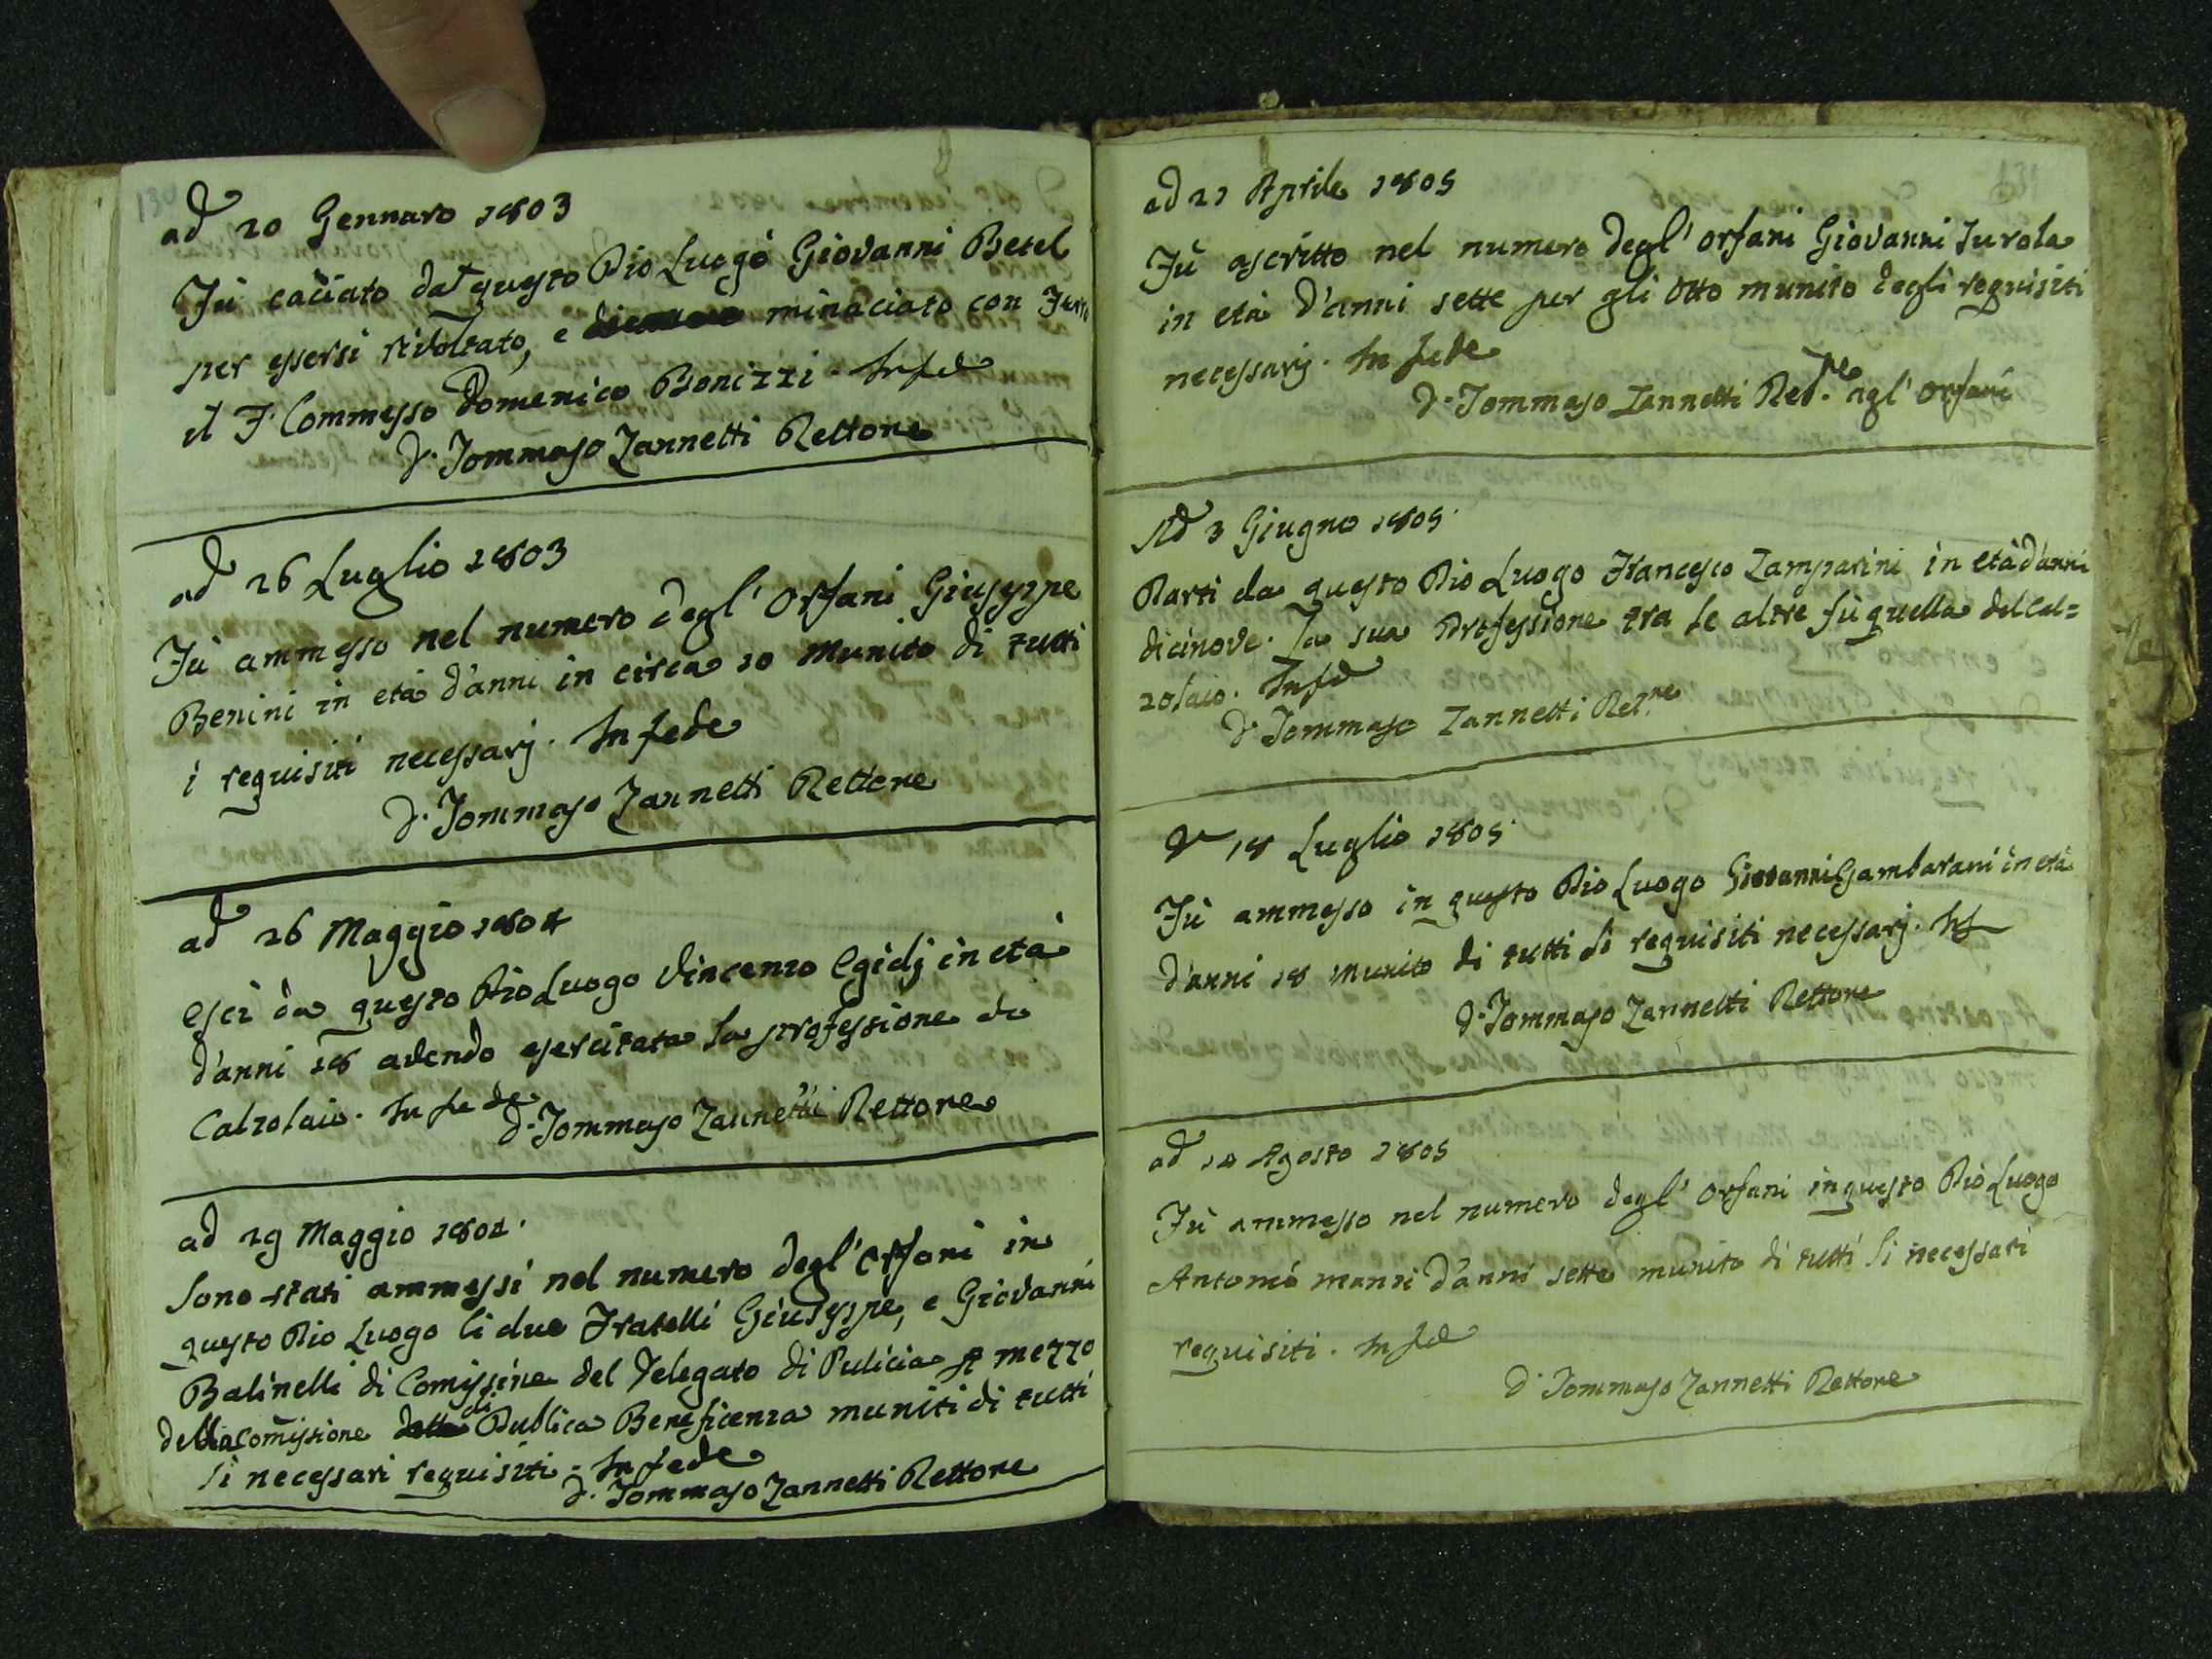 130
ad 20 Gennaro 1803
Fù caciato da questo Pio Luogo Giovanni Betel
per essersi rivoltato, e minaciato con Ferro
il F. Commesso Domenico Bonizzi. In fed
D. Tommaso Zannetti Rettore
ad 26 Luglio 1803
Fù ammesso nel numero degl' Orfani Giuseppe
Benini in età d'anni in circa 10 munito di tutti
i requisiti necessarj. In fede
D. Tommaso Zannetti Rettore
ad 26 Maggio 1804
Escì da questo Pio Luogo Vincenzo Egidj in età
d'anni 18 avendo esercitata la professione di
Calzolaio. In fede
D. Tommaso Zannetti Rettore
ad 29 Maggio 1804.
Sono stati ammessi nel numero degl' Orfani in
questo Pio Luogo li due Fratelli Giuseppe, e Giovanni
Balinelli di Comissine del Delegato di Pulicia p mezzo
della Comissione di Publica Beneficenza muniti di tutti
li necessari requisiti. In fede
D. Tommaso Zannetti Rettore
131
ad 21 Aprile 1805
Fù ascritto nel numero degl' Orfani Giovanni Turola
in età d'anni sette per gli Otto munito degli requisiti
necessarj. In fede
D. Tommaso Zannetti Ret.re agl' Orfani
Ad 3 Giugno 1805.
Partì da questo Pio Luogo Francesco Zamparini in età d'anni
dicinove. La sua Professione tra le altre fù quella del Cal=
zolaio. In fed
D. Tommaso Zannetti Ret.re
18 Luglio 1805.
Fù ammesso in questo Pio Luogo Giovanni Gambarani in età
d'anni 18 munito di tutti li requisiti necessarj.
D. Tommaso Zannetti Rettore
ad 14 Agosto 1805
Fù ammesso nel numero degl' Orfani in questo Pio Luogo
Antonio Manzi d'anni sette munito di tutti li necessari
requisiti. In fed
D. Tommaso Zannetti Rettore